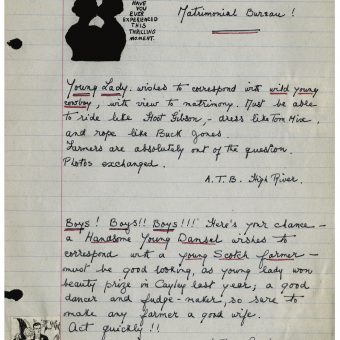 HAVE
YOU
EVER
EXPERIENCED
THIS
THRILLING
MOMENT.
Matrimonial Bureau!
Young Lady. wishes to correspond with wild young
cowboy, with view to matrimony. Must be able
to ride like Hoot Gibson, - dress like Tom Mix,
and rope like Buck Jones.
Farmers are absolutely out of the question.
Photos exchanged.
A.T.B. High River.
Boys! Boys!! Boys!!! Here's your chance -
a Handsome Young Damsel wishes to
correspond with a young Scotch farmer -
must be good looking, as young lady won
beauty prize in Cayley last year; a good
dancer and fudge-maker, so sure to
make any farmer a good wife.
Act quickly!!